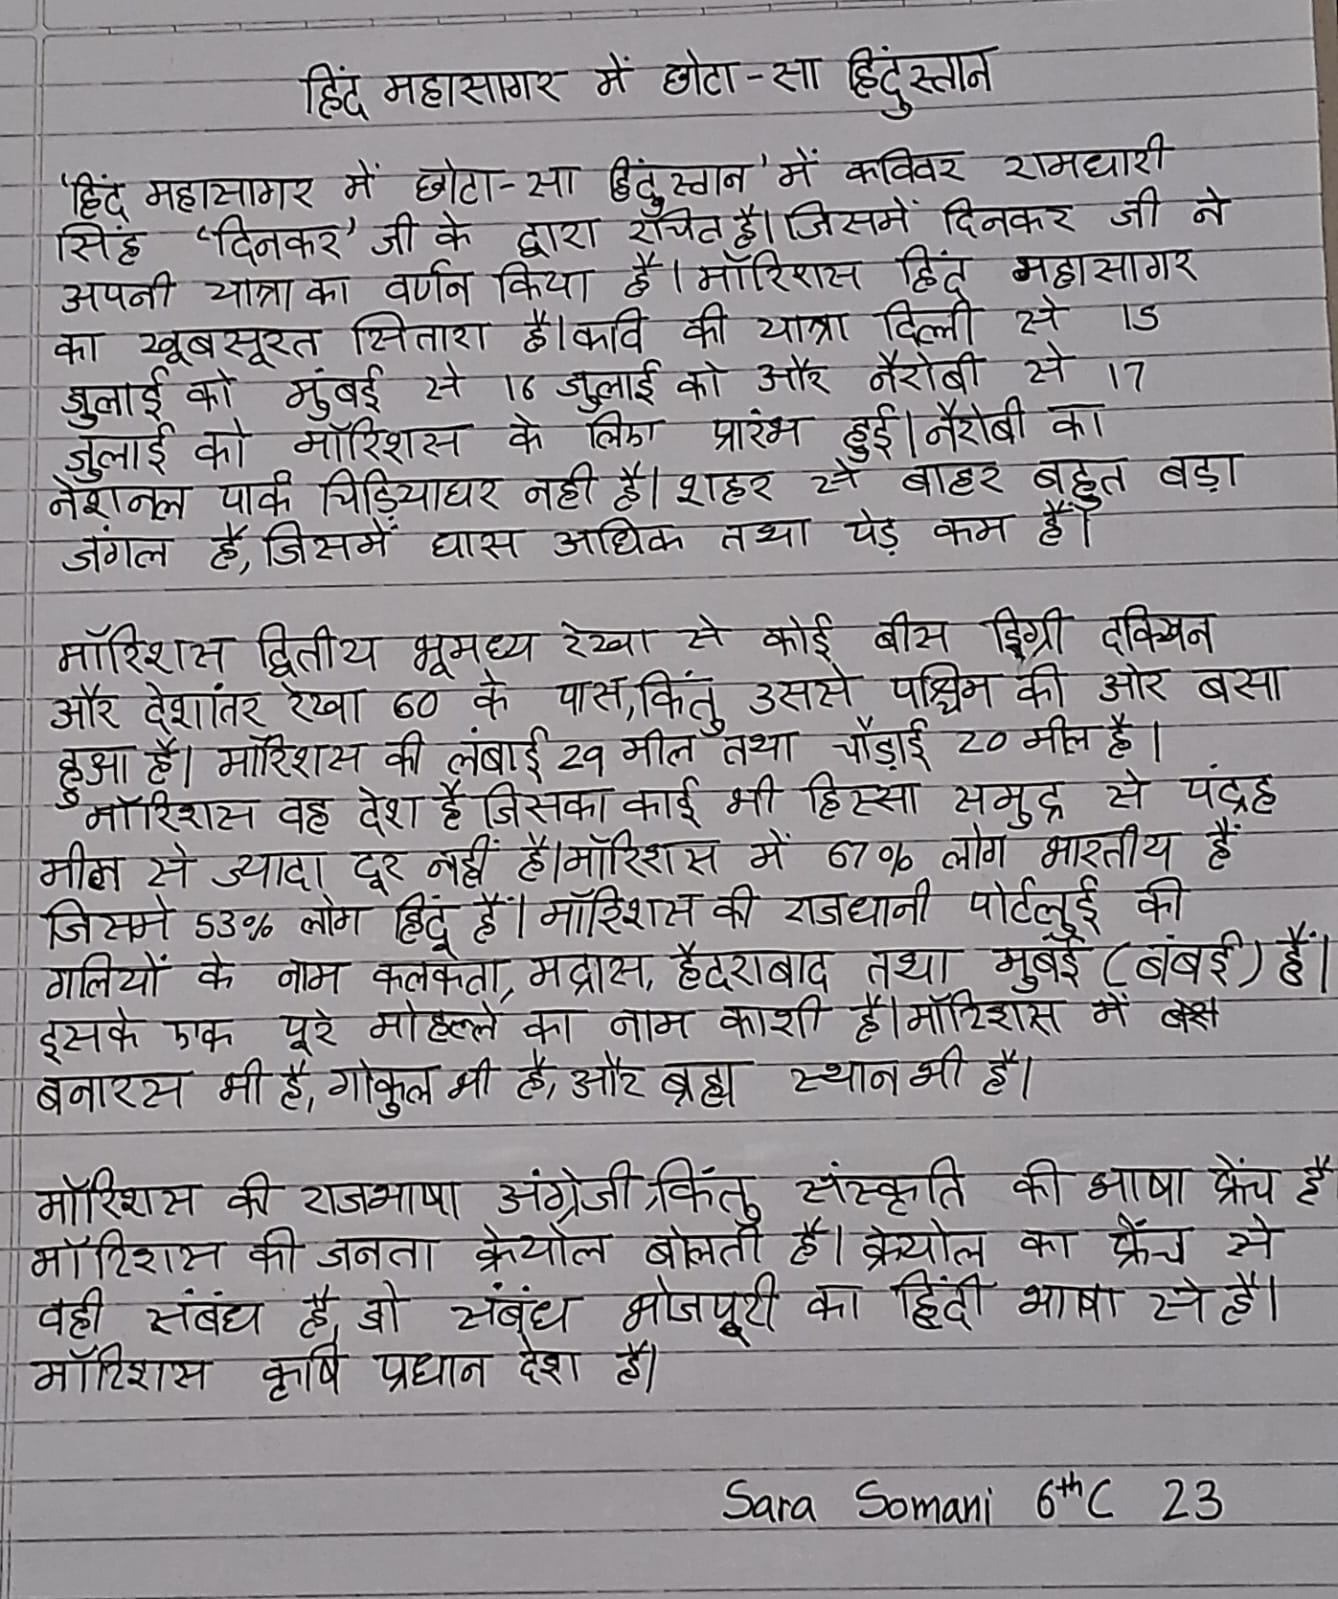 हिंद महासागर में छोटा-सा हिंदुस्तान
'हिंद महासागर में छोटा-सा हिंदुस्तान' में कविवर रामधारी
सिंह 'दिनकर' जी के द्वारा रचित है। जिसमें दिनकर जी ने
अपनी यात्रा का वर्णन किया है। मॉरिशस हिंद महासागर
का खूबसूरत सितारा है। कवि की यात्रा दिल्ली से 15
जुलाई को मुंबई से 16 जुलाई को और नैरोबी से 17
जुलाई को मॉरिशस के लिए प्रारंभ हुई। नैरोबी का
नेशनल पार्क चिड़ियाघर नही है। शहर से बाहर बहुत बड़ा
जंगल है, जिसमें घास अधिक तथा पेड़ कम हैं।
मॉरिशस द्वितीय भूमध्य रेखा से कोई बीस डिग्री दक्खिन
और देशांतर रेखा 60 के पास, किंतु उससे पश्चिम की ओर बसा
हुआ है। मॉरिशस की लंबाई 29 मील तथा चौड़ाई 20 मील है।
मॉरिशस वह देश है जिसका काई भी हिस्सा समुद्र से पंद्रह
मील से ज्यादा दूर नहीं है। मॉरिशस में 67% लोग भारतीय हैं
जिसमे 53% लोग हिंदू हैं। मॉरिशस की राजधानी पोर्टलुई की
गलियों के नाम कलकता, मद्रास, हैदराबाद तथा मुबंई (बंबई) हैं।
इसके एक पूरे मोहल्ले का नाम काशी है। मॉरिशस में
बनारस भी है, गोकुल भी है, और ब्रह्म स्थान भी है।
मॉरिशस की राजभाषा अंग्रेजी, किंतु संस्कृति की भाषा फ्रेंच है
मॉरिशस की जनता क्रेयोल बोलती है। क्रेयोल का फ्रेंच से
वही संबंध है, जो संबंध भोजपूरी का हिंदी भाषा से है।
मॉरिशस कृषि प्रधान देश है।
Sara Somani 6th C 23